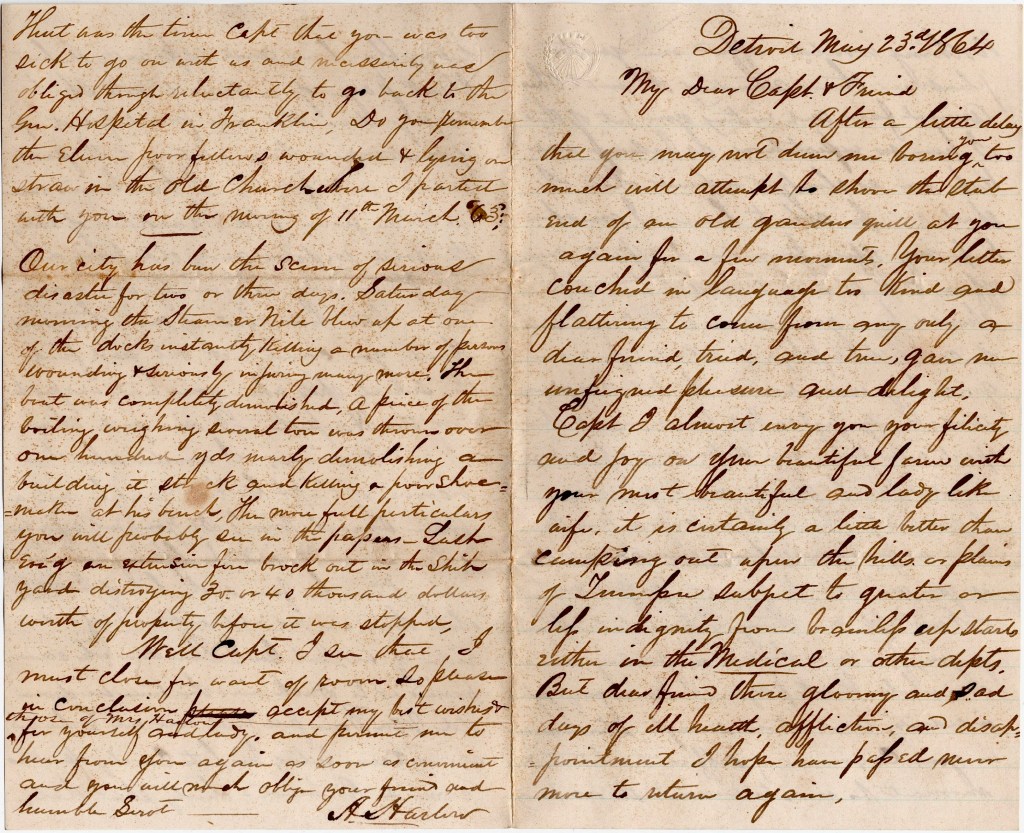 Detroit May 23.d 1864
My Dear Capt. & Friend
After a little delay
that you may not deem me boring you too
much will attempt to shove the stub
end of an old ganders quill at you
again for a few moments. Your letter
couched in language too kind and
flattering to come from any only a
dear friend, tried, and true, gave me
unfeigned pleasure and delight.
Capt I almost envy you your filicity
and joy on your beautiful farm with
your most beautiful and lady like
wife, it is certainly a little better than
camping out upon the hills or plains
of Tennessee subject to greater or
less indignity from brainless upstarts
either in the Medical or other depts.
But dear friend those gloomy and sad
days of ill health, affliction, and disap=
=pointment I hope have passed never
more to return again,
That was the time Capt that you was too
sick to go on with us and necessarily was
obliged though reluctantly to go back to the
Gen. Hospital in Franklin, Do you remember
the Eleven poor fellows wounded & lying on
straw in the old Church where I parted
with you on the morning of 11th March 63?
Our city has been the scene of serious
disaster for two or three days. Saturday
morning the Steamer Nile blew up at one
of the docks instantly killing a number of persons
wounding & seriously injuring many more. The
boat was completely demolished, a piece of the
boiling weighing several tons was thrown over
one hundred yds nearly demolishing a
building it struck and killing a poor shoe=
=maker at his bench, The more full particulars
you will probably see in the papers — Last
Eve'g an extensive fire brock out in the Ship
yard distroying 30. or 40 thousand dollars
worth of property before it was stopped,
Well Capt. I see that I
must close for want of room. So please
in conclusion accept my best wishes &
those of Mrs. Harlow
for yourself and lady, and permit me to
hear from you again as soon as convenient
and you will much oblige your friend and
humble Servt — A. Harlow